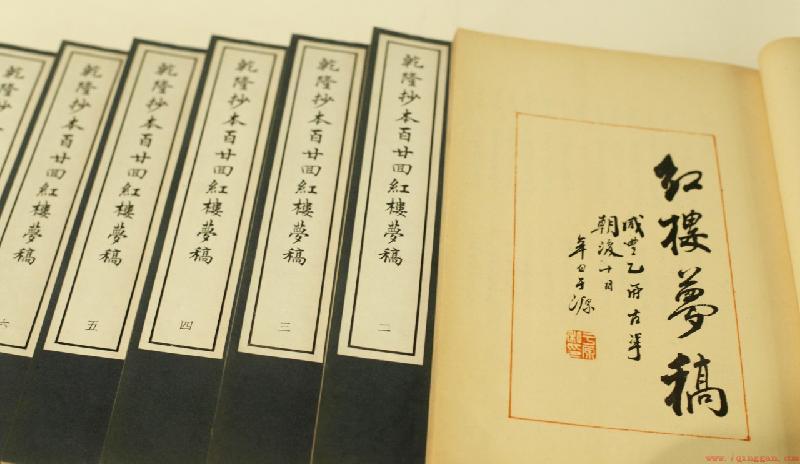 紅樓夢稿
咸豐乙卯古華
朝後十日
辛白于源
乾隆抄本百廿回紅樓夢稿
二
乾隆抄本百廿回紅樓夢稿
三
乾隆抄本百廿回紅樓夢稿
四
乾隆抄本百廿回紅樓夢稿
五
乾隆抄
夢稿
六
www.7qinggan.com